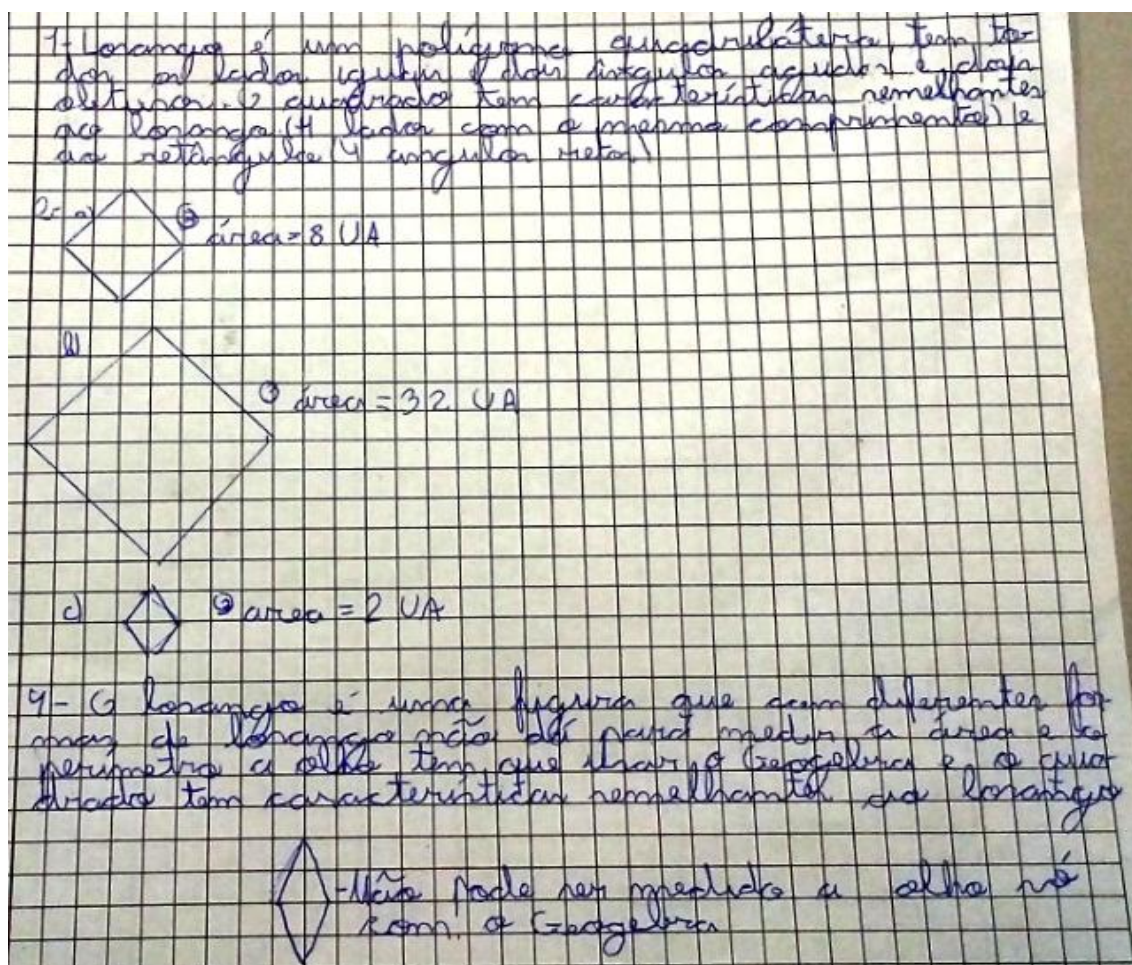 1- Losango é um polígono quadrilátero, tem, to-
dos os lados iguais e dois ângulos agudos e dois
obtusos. O quadrado tem caracteristicas semelhantes
ao losango (4 lados com o mesmo comprimento) e
ao retângulo (4 angulos retos)
2- a) área = 8 UA
b) área = 32 UA
c) area = 2 UA
4- O losango é uma figura que com diferentes for
mas de losango não dá para medir a área e o
perimetro a olho tem que usar o Geogebra e o qua
drado tem características semelhantes ao losango
- Não pode ser medido a olho só
com o Geogebra